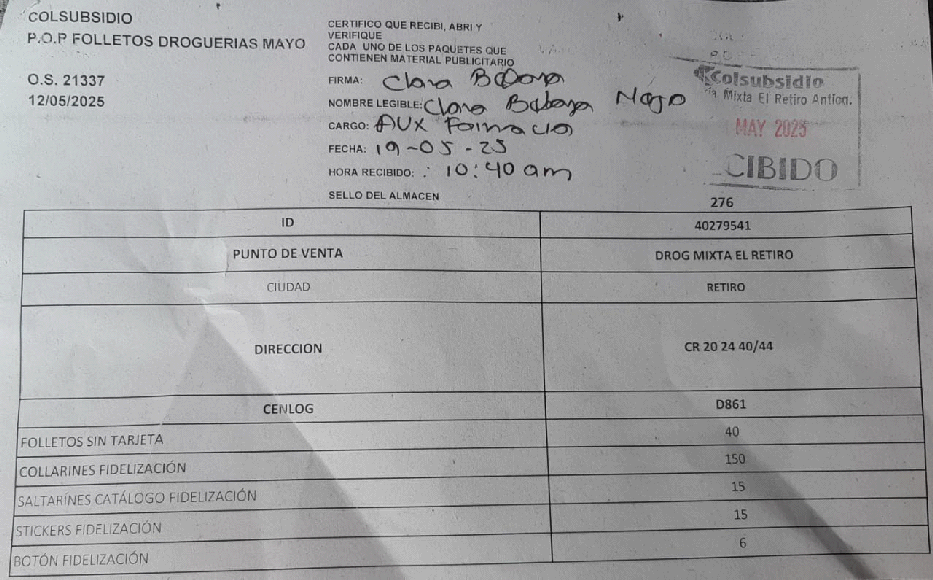 COLSUBSIDIO
P.O.P FOLLETOS DROGUERIAS MAYO
O.S. 21337
12/05/2025
CERTIFICO QUE RECIBI, ABRI Y
VERIFIQUE
CADA UNO DE LOS PAQUETES QUE
CONTIENEN MATERIAL PUBLICITARIO
FIRMA: Clara
NOMBRE LEGIBLE: Clara
CARGO: AUX Farmacia
FECHA: 19-05-25
HORA RECIBIDO: : 10:40 am
SELLO DEL ALMACEN
Colsubsidio
Mixta El Retiro Antion.
MAY 2025
CIBIDO
276
ID 40279541
PUNTO DE VENTA DROG MIXTA EL RETIRO
CIUDAD RETIRO
DIRECCION CR 20 24 40/44
CENLOG D861
FOLLETOS SIN TARJETA 40
COLLARINES FIDELIZACIÓN 150
SALTARINES CATÁLOGO FIDELIZACIÓN 15
STICKERS FIDELIZACIÓN 15
BOTÓN FIDELIZACIÓN 6